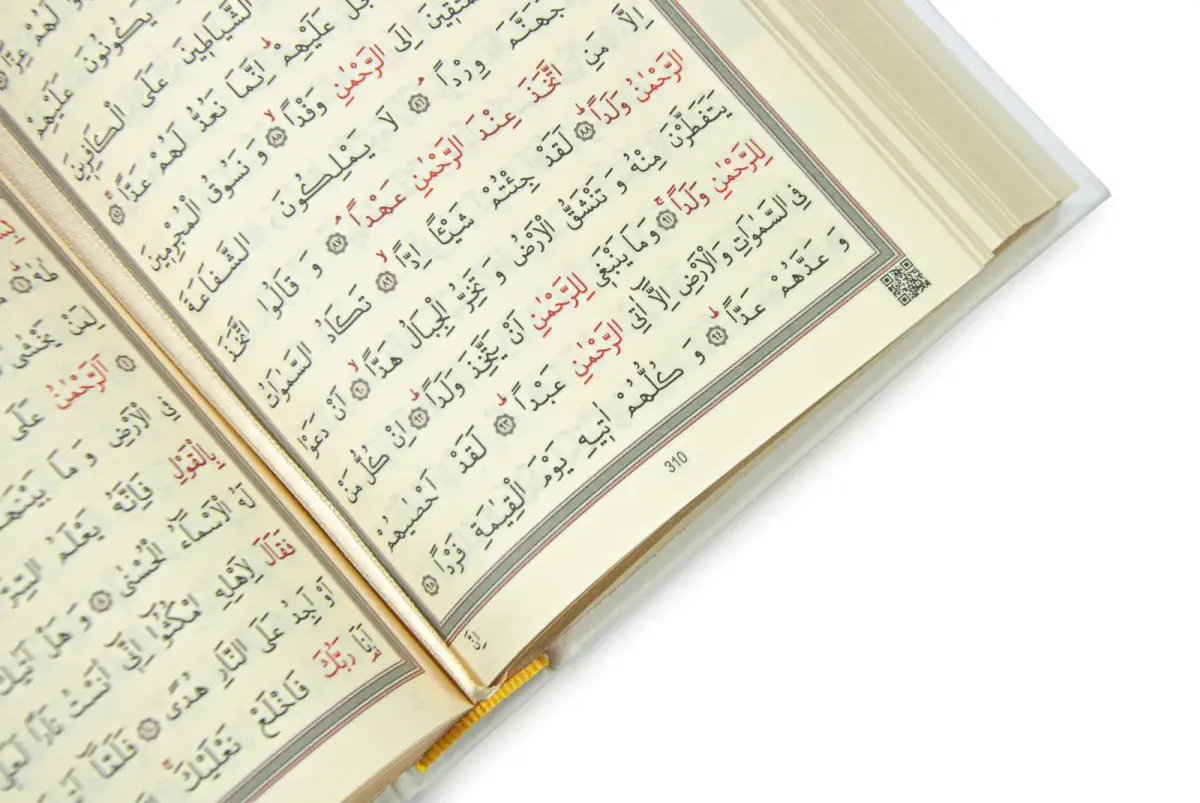 وَيَكُونُونَ عَلَيْهِمْ
الشَّيَاطِينَ عَلَى الْكَافِرِينَ
عَلَيْهِمْ اِنَّمَا نَعُدُّ لَهُمْ عَدًّا ٨٤
اِلَى الرَّحْمٰنِ وَفْدًا ٨٥ وَنَسُوقُ الْمُجْرِمِينَ
جَهَنَّمَ وِرْدًا ٨٦ لَا يَمْلِكُونَ الشَّفَاعَةَ
اِلَّا مَنِ اتَّخَذَ عِنْدَ الرَّحْمٰنِ عَهْدًا ٨٧ وَقَالُوا اتَّخَذَ
الرَّحْمٰنُ وَلَدًا ٨٨ لَقَدْ جِئْتُمْ شَيْـًٔا اِدًّا ٨٩ تَكَادُ السَّمٰوَاتُ
يَتَفَطَّرْنَ مِنْهُ وَتَنْشَقُّ الْاَرْضُ وَتَخِرُّ الْجِبَالُ هَدًّا ٩٠ اَنْ دَعَوْا
لِلرَّحْمٰنِ وَلَدًا ٩١ وَمَا يَنْبَغِي لِلرَّحْمٰنِ اَنْ يَتَّخِذَ وَلَدًا ٩٢ اِنْ كُلُّ مَنْ
فِي السَّمٰوَاتِ وَالْاَرْضِ اِلَّٓا اٰتِي الرَّحْمٰنِ عَبْدًا ٩٣ لَقَدْ اَحْصٰيهُمْ
وَعَدَّهُمْ عَدًّا ٩٤ وَكُلُّهُمْ اٰتِيهِ يَوْمَ الْقِيٰمَةِ فَرْدًا ٩٥
310
اِنَّ
لِمَنْ يَخْشٰى
اَلرَّحْمٰنُ عَلَى
فِي الْاَرْضِ وَمَا بَيْنَهُمَا
بِالْقَوْلِ فَاِنَّهُ يَعْلَمُ السِّرَّ
لَهُ الْاَسْمَٓاءُ الْحُسْنٰى ٨ وَهَلْ اَتٰيكَ
فَقَالَ لِاَهْلِهِ امْكُثُٓوا اِنِّٓي اٰنَسْتُ نَارًا لَعَلِّٓي
اَوْ اَجِدُ عَلَى النَّارِ هُدًى ١٠ فَلَمَّٓا
اَنَا رَبُّكَ فَاخْلَعْ نَعْلَيْكَ